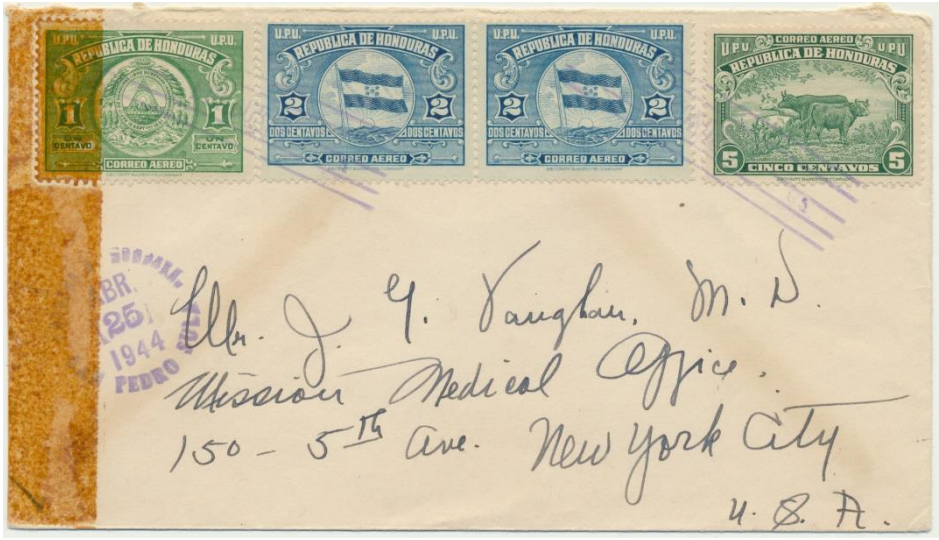 U.P.U. U.P.U.
REPUBLICA DE HONDURAS
1 1
UN CENTAVO UN CENTAVO
CORREO AEREO
U.P.U. U.P.U.
REPUBLICA DE HONDURAS
2 2
DOS CENTAVOS DOS CENTAVOS
CORREO AEREO
U.P.U. U.P.U.
REPUBLICA DE HONDURAS
2 2
DOS CENTAVOS DOS CENTAVOS
CORREO AEREO
CORREO AEREO
U.P.U U.P.U
REPUBLICA DE HONDURAS
5 5
CINCO CENTAVOS
ABR.
25
1944
PEDRO SULA
Mr. J. G. Vaughan, M. D.
Mission Medical Office.
150 - 5th Ave. New York City
U. S. A.